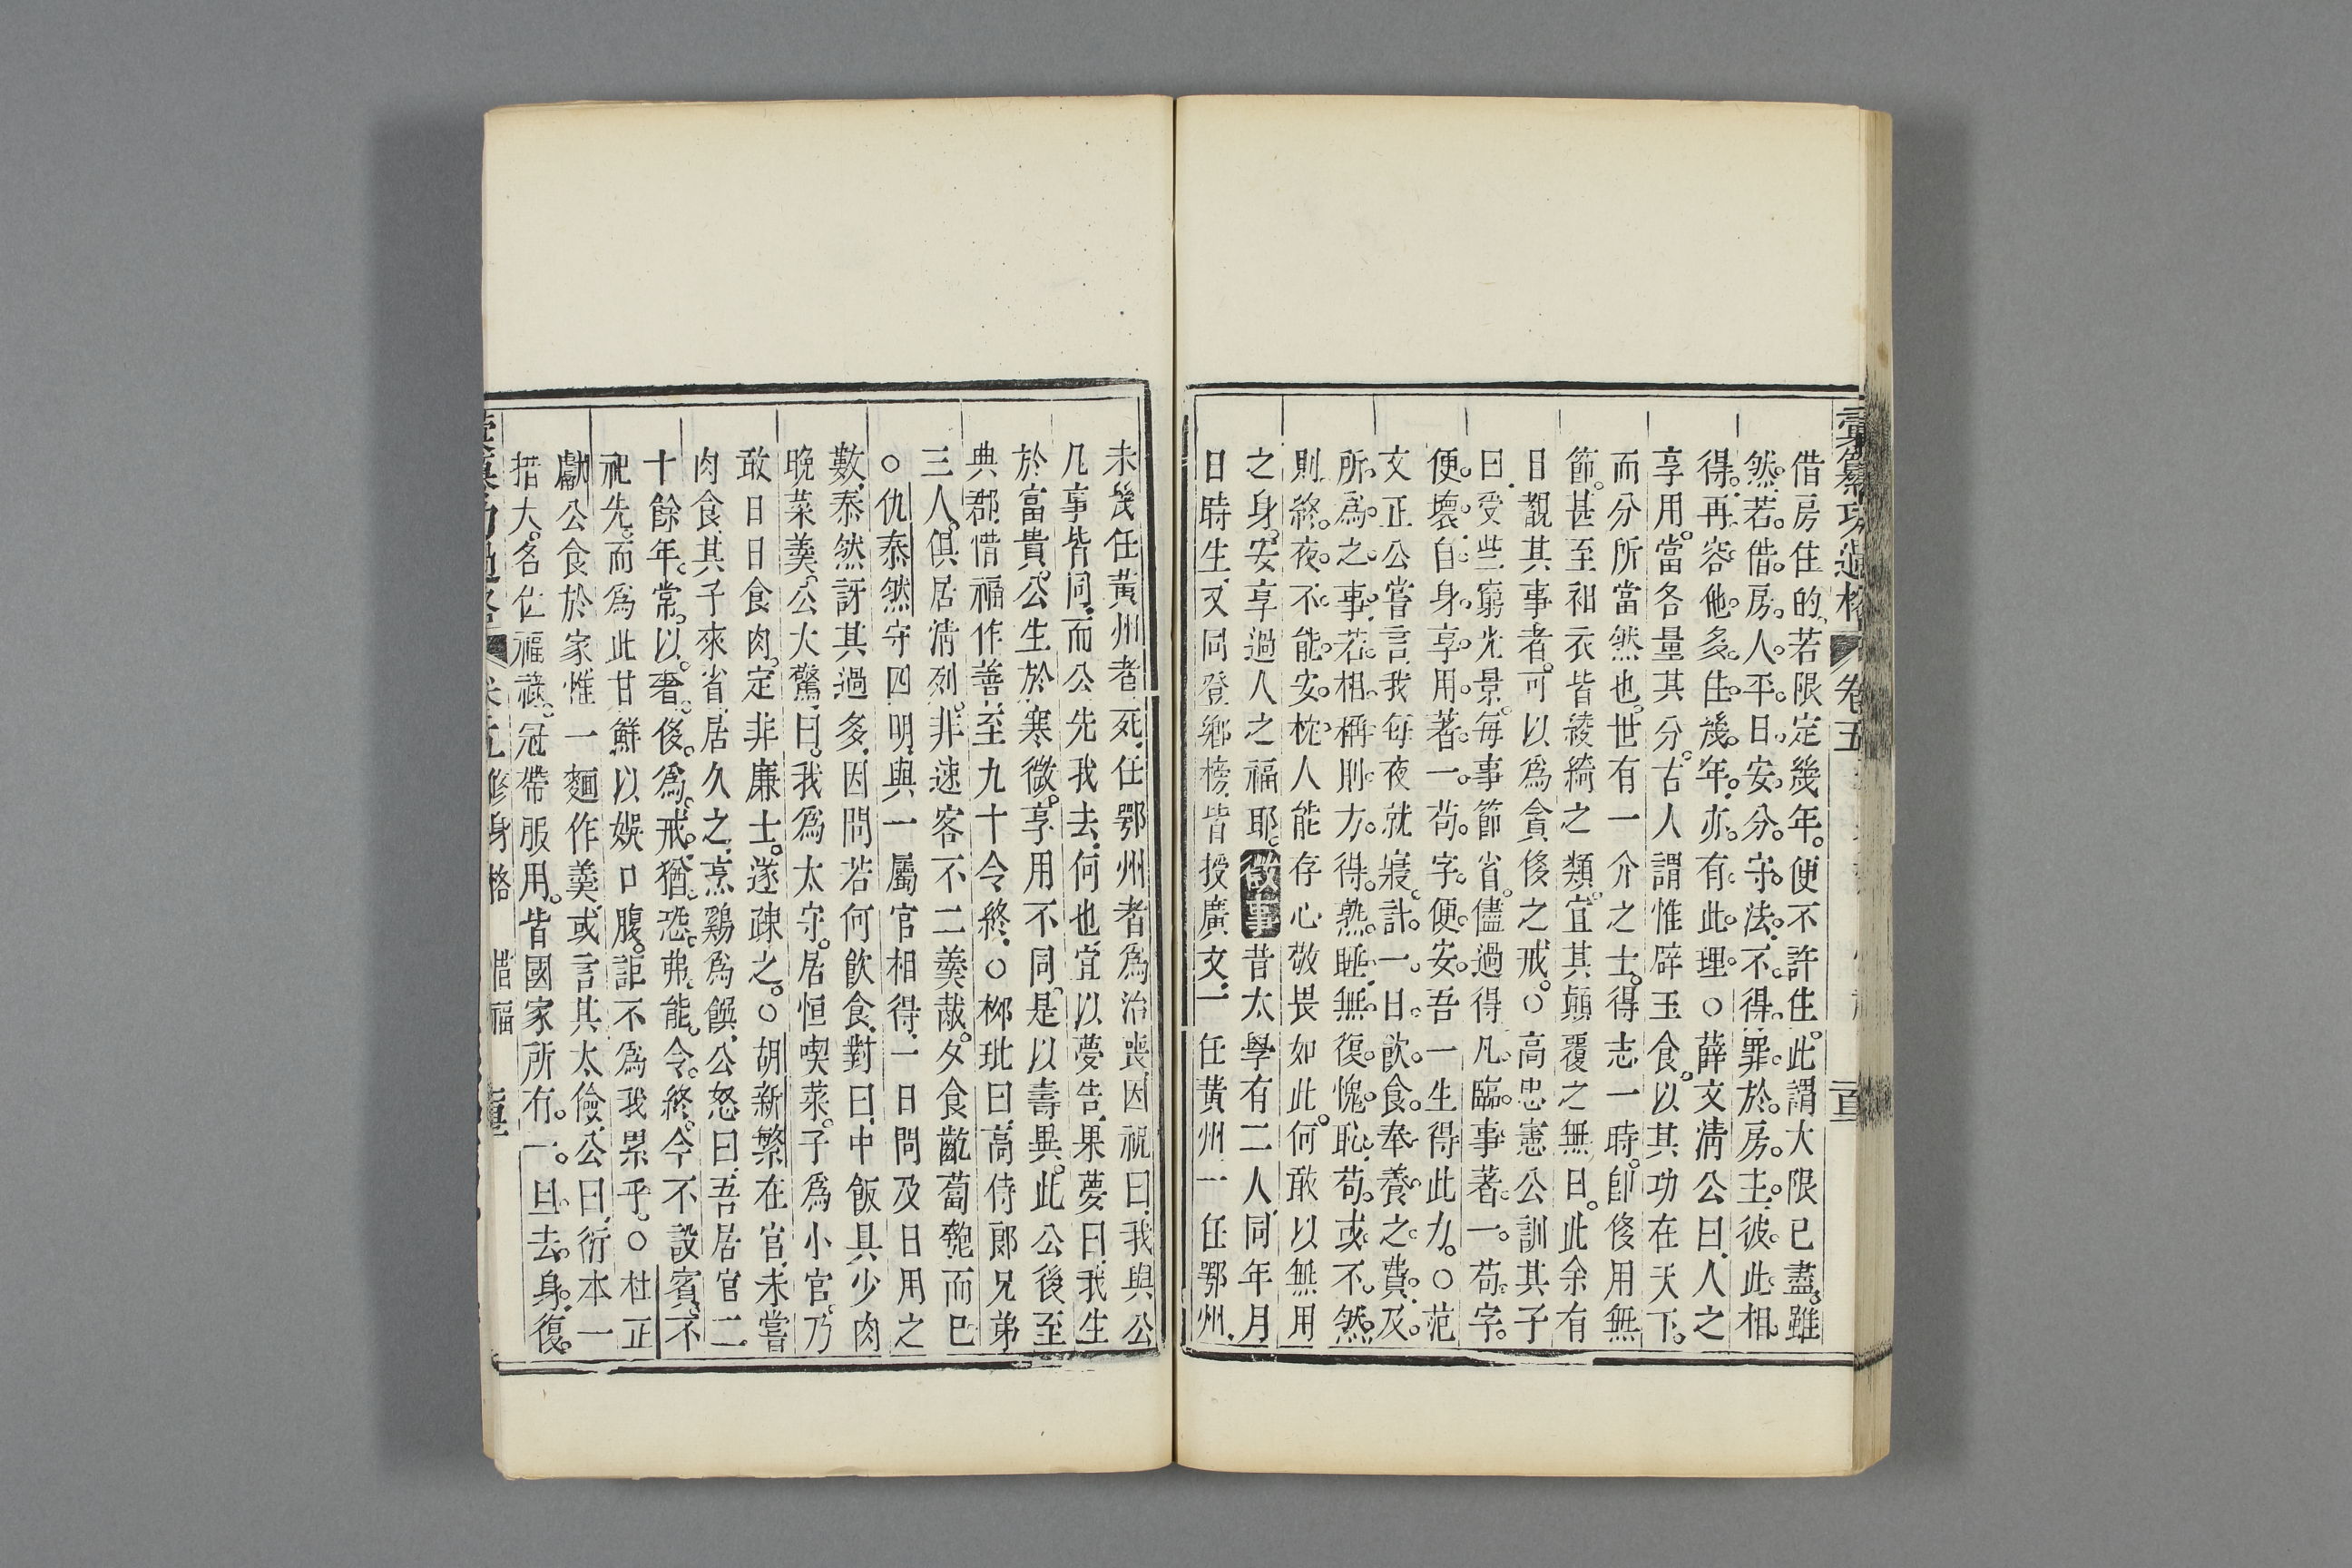 彙纂功過格 卷五
借房住的。若限定幾年。便不許住。此謂大限已盡。雖
然。若借房人平日安分守法。不得罪於房主。彼此相
得。再容他多住幾年。亦有此理。○薛文清公曰。人之
享用。當各量其分。古人謂惟辟玉食。以其功在天下。
而分所當然也。世有一介之士。得志一時。卽侈用無
節。甚至衵衣皆綾綺之類。宜其顛覆之無日。此余有
目覩其事者。可以爲貪侈之戒。○高忠憲公訓其子
曰。受些窮光景。每事節省。儘過得凡臨事著一。苟字。
便壞。自身享用。著一苟字。便安。吾一生得此力。○范
文正公嘗言。我每夜就寢。計一日飲食奉養之費。及
所爲之事。若相稱。則方得熟睡。無復愧恥。苟或不然。
則終夜不能安枕。人能存心敬畏如此。何敢以無用
之身。安享過人之福耶。徵事昔太學有二人。同年月
日時生。又同登鄉榜。皆授廣文。一任黃州。一任鄂州。
未幾任黃州者死。任鄂州者爲治喪。因祝曰。我與公
凡事皆同。而公先我去。何也。宜以夢告。果夢曰。我生
於富貴。公生於寒微。享用不同。是以壽異。此公後至
典郡。惜福作善。至九十令終。○柳玭曰。高侍郎兄弟
三人。俱居淸列。非速客不二羹胾。夕食齕蔔匏而已
○仇泰然守四明。與一屬官相得。一日問及日用之
數。泰然訝其過多。因問若何飲食。對曰。中飯具少肉
晚菜羹。公大驚曰。我爲太守。居恒喫菜。子爲小官。乃
敢日日食肉。定非廉士。遂疎之。○胡新繁在官。未嘗
肉食。其子來省。居久之。烹鷄爲饌。公怒曰。吾居官二
十餘年。常以奢侈爲戒。猶恐弗能令終。今不設賓。不
祀先。而爲此甘鮮。以娛口腹。詎不爲我累乎。○杜正
獻公食於家。惟一麵作羹。或言其太儉。公曰。衍本一
措大。名位福祿。冠帶服用。皆國家所有。一旦去身。復
卷五 修身格 惜福